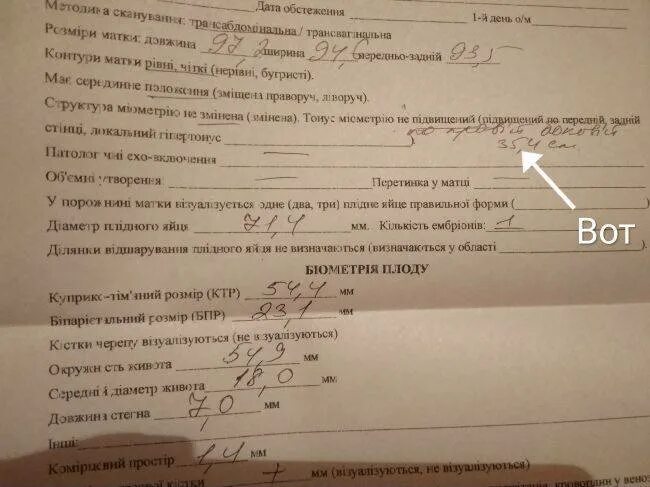 Методика сканування: трансабдомінальна / трансвагінальна
Дата обстеження 1-й день о/м
Розміри матки: довжина 97,2 ширина 94,6 передньо-задній 93,5
Контури матки рівні, чіткі (нерівні, бугристі).
Має серединне положення (зміщена праворуч, ліворуч).
Структура міометрію не змінена (змінена). Тонус міометрію не підвищений (підвищений по передній, задній
стінці, локальний гіпертонус ) по правій боковій
35,4 см
Патологічні ехо-включення
Об'ємні утворення: Перетинка у матці
У порожнині матки візуалізується одне (два, три) плідне яйце правильної форми ( )
Діаметр плідного яйця 71,4 мм. Кількість ембріонів: 1
Вот
Ділянки відшарування плідного яйця не визначаються (визначаються у області ).
БІОМЕТРІЯ ПЛОДУ
Куприко-тім'яний розмір (КТР) 54,4 мм
Біпарієтальний розмір (БПР) 23,1 мм
Кістки черепу візуалізуються (не візуалізуються)
Окружність живота 54,9 мм
Середній діаметр живота 18,0 мм
Довжина стегна 7,0 мм
Інші:
Комірцевий простір 1,4 мм
кістки + мм (візуалізуються, не візуалізуються)